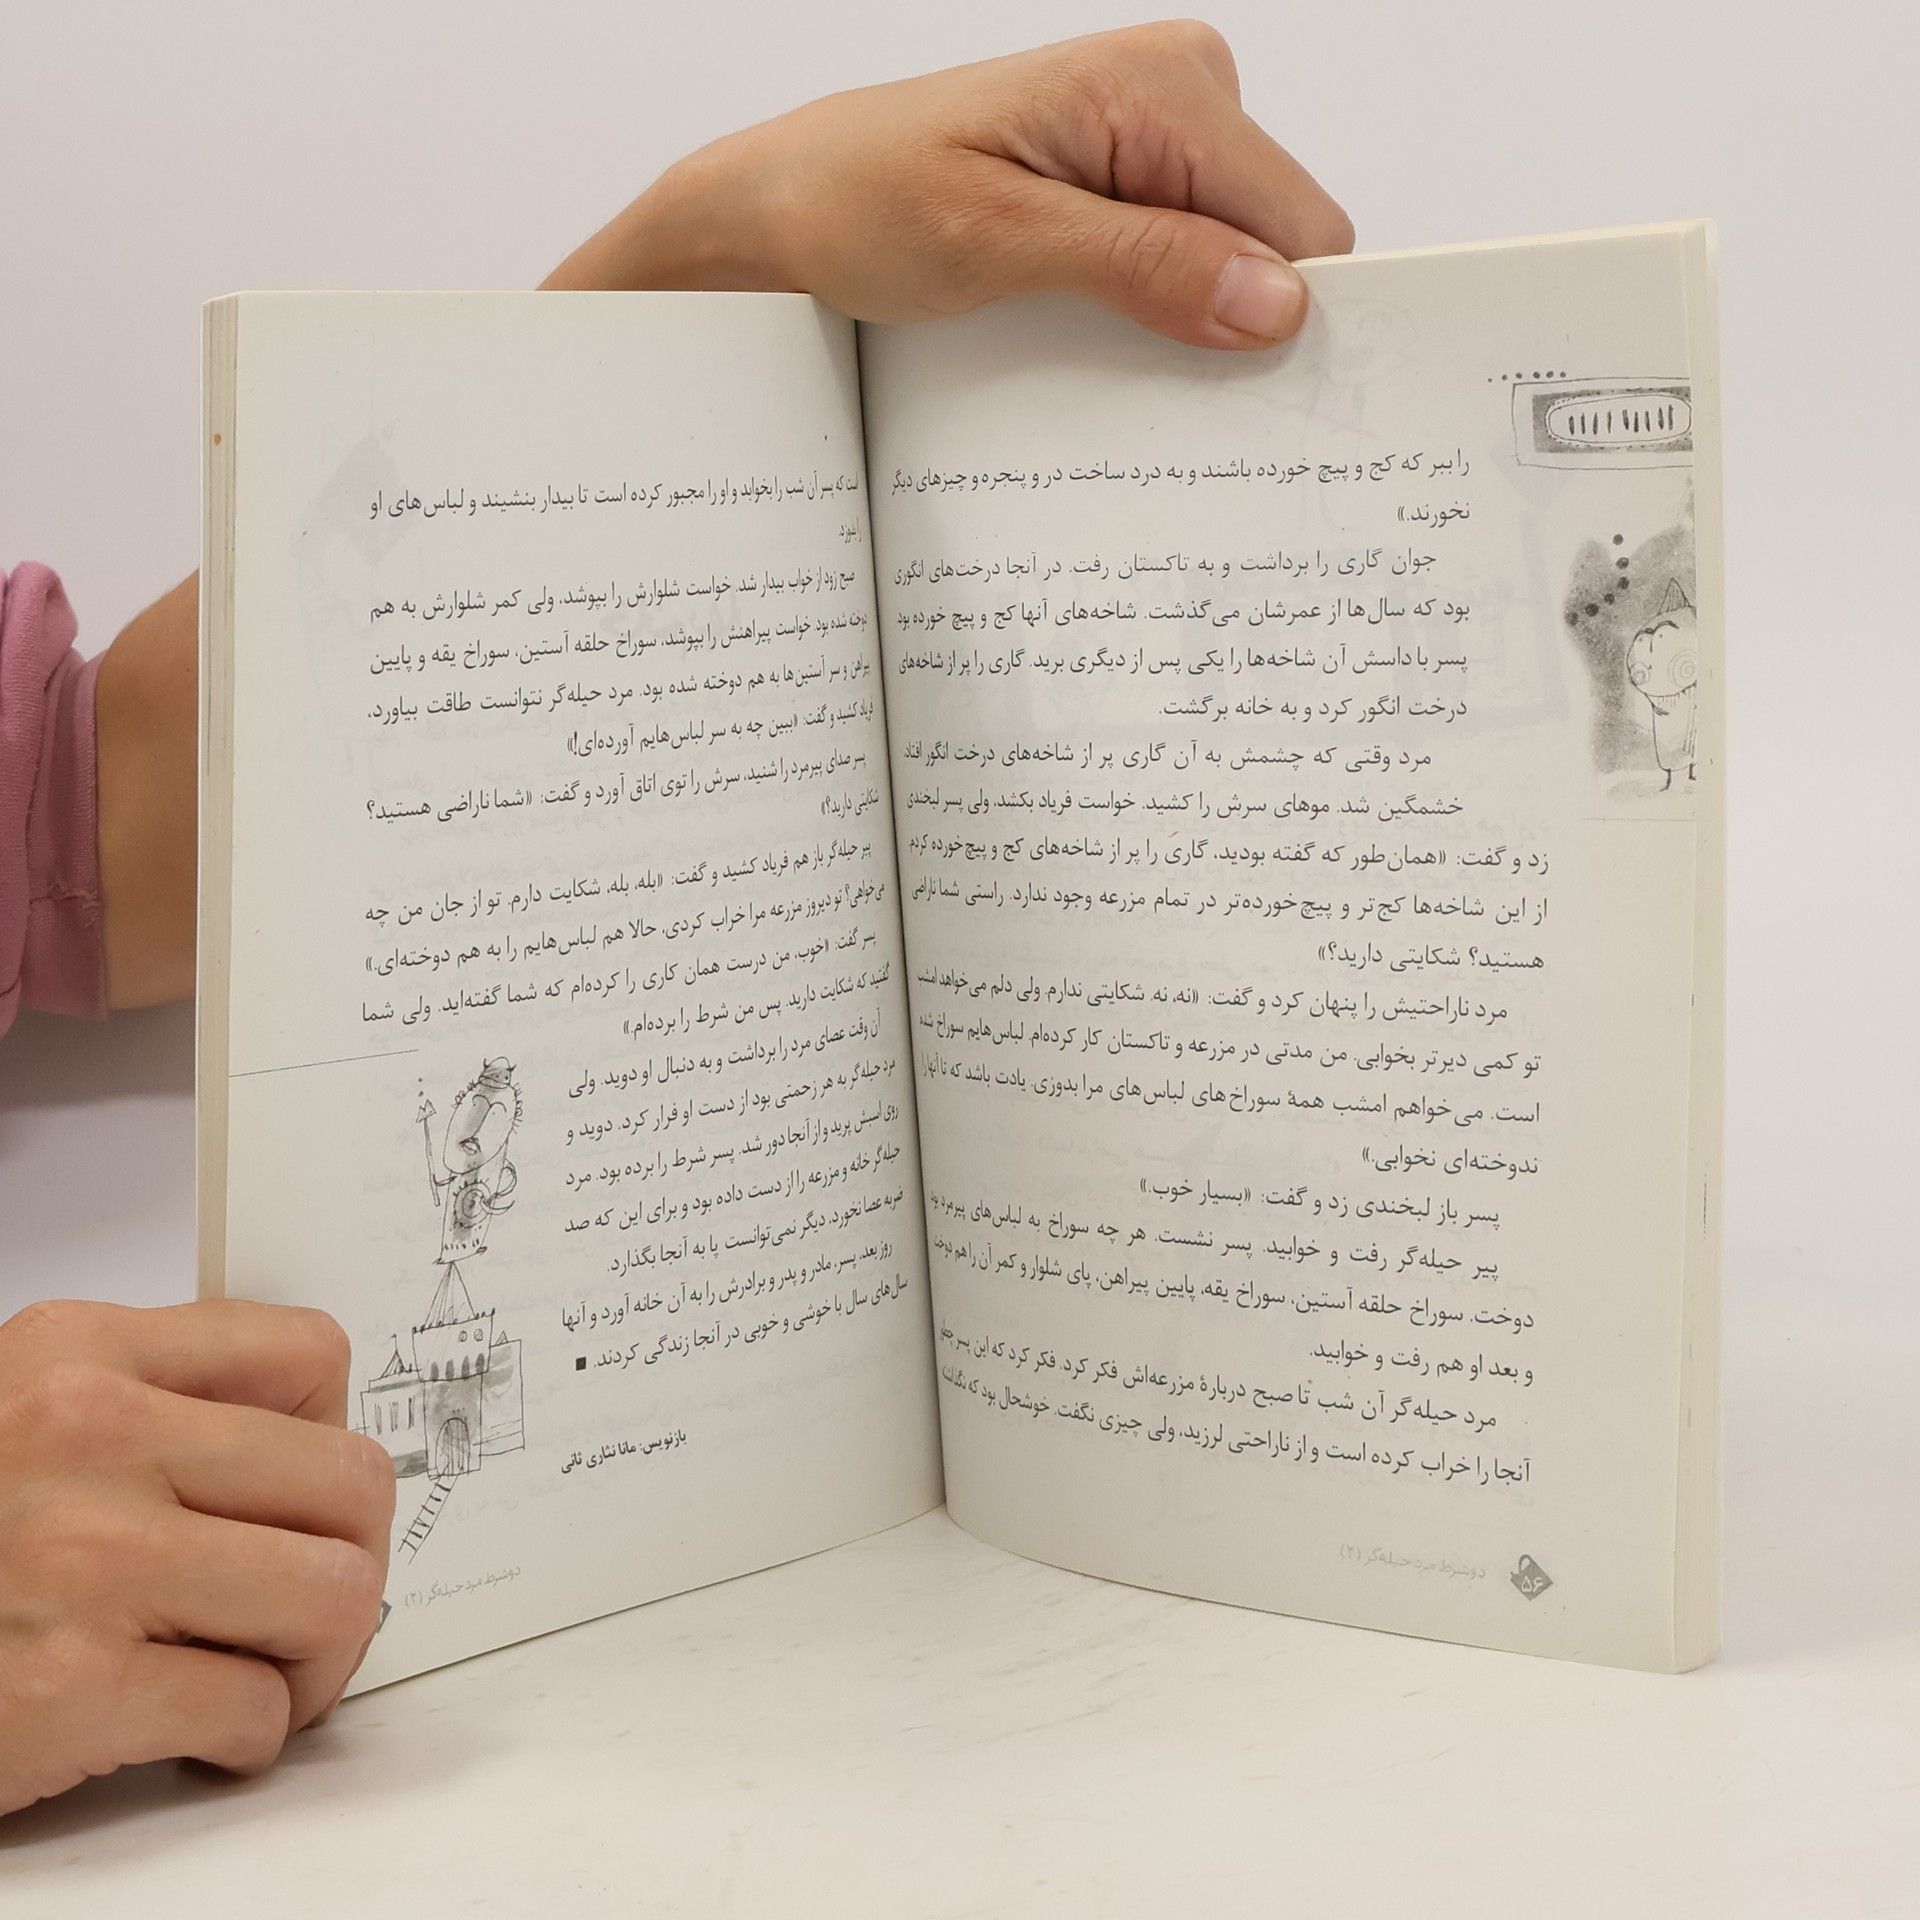 را ببر که کج و پیچ خورده باشند و به درد ساخت در و پنجره و چیزهای دیگر
نخورند.»
جوان گاری را برداشت و به تاکستان رفت. در آنجا درخت‌های انگوری
بود که سال‌ها از عمرشان می‌گذشت. شاخه‌های آنها کج و پیچ خورده بود
پسر با داسش آن شاخه‌ها را یکی پس از دیگری برید. گاری را پر از شاخه‌های
درخت انگور کرد و به خانه برگشت.
مرد وقتی که چشمش به آن گاری پر از شاخه‌های درخت انگور افتاد،
خشمگین شد. موهای سرش را کشید. خواست فریاد بکشد، ولی پسر لبخندی
زد و گفت: «همان‌طور که گفته بودید، گاری را پر از شاخه‌های کج و پیچ‌خورده کردم
از این شاخه‌ها کج‌تر و پیچ‌خورده‌تر در تمام مزرعه وجود ندارد. راستی شما ناراضی
هستید؟ شکایتی دارید؟»
مرد ناراحتیش را پنهان کرد و گفت: «نه، نه. شکایتی ندارم. ولی دلم می‌خواهد امشب
تو کمی دیرتر بخوابی. من مدتی در مزرعه و تاکستان کار کرده‌ام. لباس‌هایم سوراخ شده
است. می‌خواهم امشب همهٔ سوراخ‌های لباس‌های مرا بدوزی. یادت باشد که تا آنها را
ندوخته‌ای نخوابی.»
پسر باز لبخندی زد و گفت: «بسیار خوب.»
پیر حیله‌گر رفت و خوابید. پسر نشست. هر چه سوراخ به لباس‌های پیرمرد بود
دوخت. سوراخ حلقه آستین، سوراخ یقه، پایین پیراهن، پای شلوار و کمر آن را هم دوخت
و بعد او هم رفت و خوابید.
مرد حیله‌گر آن شب تا صبح دربارهٔ مزرعه‌اش فکر کرد. فکر کرد که این پسر چطور
آنجا را خراب کرده است و از ناراحتی لرزید، ولی چیزی نگفت. خوشحال بود که نگذاشته
۵۶
دو شرط مرد حیله‌گر (۲)
است که پسر آن شب را بخوابد و او را مجبور کرده است تا بیدار بنشیند و لباس‌های او
را بدوزد.
صبح زود از خواب بیدار شد. خواست شلوارش را بپوشد، ولی کمر شلوارش به هم
دوخته شده بود. خواست پیراهنش را بپوشد، سوراخ حلقه آستین، سوراخ یقه و پایین
پیراهن و سر آستین‌ها به هم دوخته شده بود. مرد حیله‌گر نتوانست طاقت بیاورد،
فریاد کشید و گفت: «ببین چه به سر لباس‌هایم آورده‌ای!»
پسر صدای پیرمرد را شنید، سرش را توی اتاق آورد و گفت: «شما ناراضی هستید؟
شکایتی دارید؟»
پیر حیله‌گر باز هم فریاد کشید و گفت: «بله، بله، شکایت دارم. تو از جان من چه
می‌خواهی؟ تو دیروز مزرعه مرا خراب کردی، حالا هم لباس‌هایم را به هم دوخته‌ای.»
پسر گفت: «خوب، من درست همان کاری را کرده‌ام که شما گفته‌اید. ولی شما
گفتید که شکایت دارید. پس من شرط را برده‌ام.»
آن وقت عصای مرد را برداشت و به دنبال او دوید. ولی
مرد حیله‌گر به هر زحمتی بود از دست او فرار کرد. دوید و
روی اسبش پرید و از آنجا دور شد. پسر شرط را برده بود. مرد
حیله‌گر خانه و مزرعه را از دست داده بود و برای این که صد
ضربه عصا نخورد، دیگر نمی‌توانست پا به آنجا بگذارد.
روز بعد، پسر، مادر و پدر و برادرش را به آن خانه آورد و آنها
سال‌های سال با خوشی و خوبی در آنجا زندگی کردند. ■
بازنویس: مانا نثاری ثانی
دو شرط مرد حیله‌گر (۲)